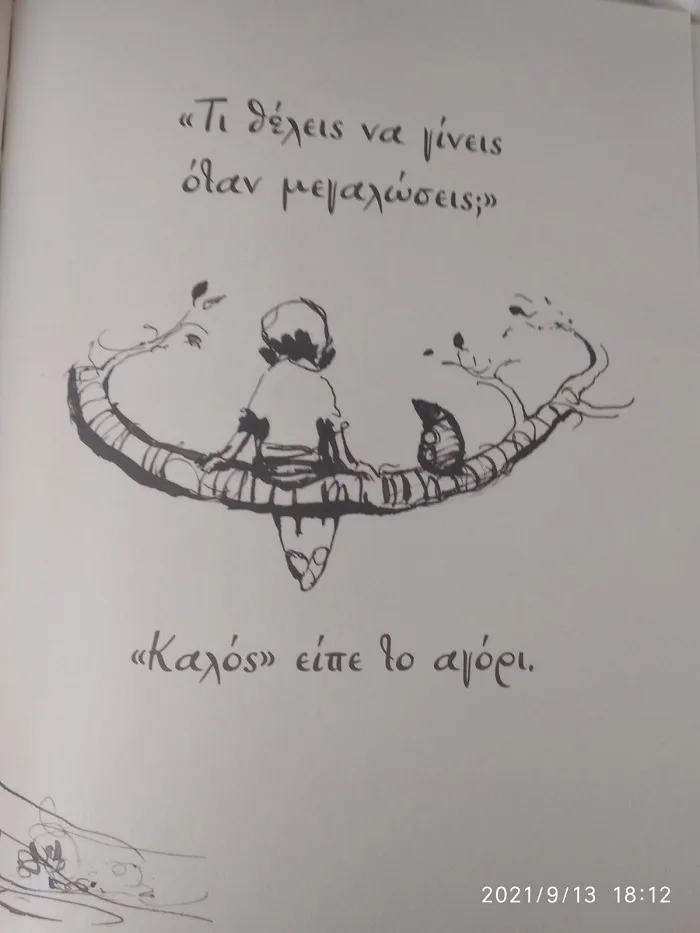 «Τι θέλεις να γίνεις
όταν μεγαλώσεις;»
«Καλός» είπε το αγόρι.
2021/9/13 18:12